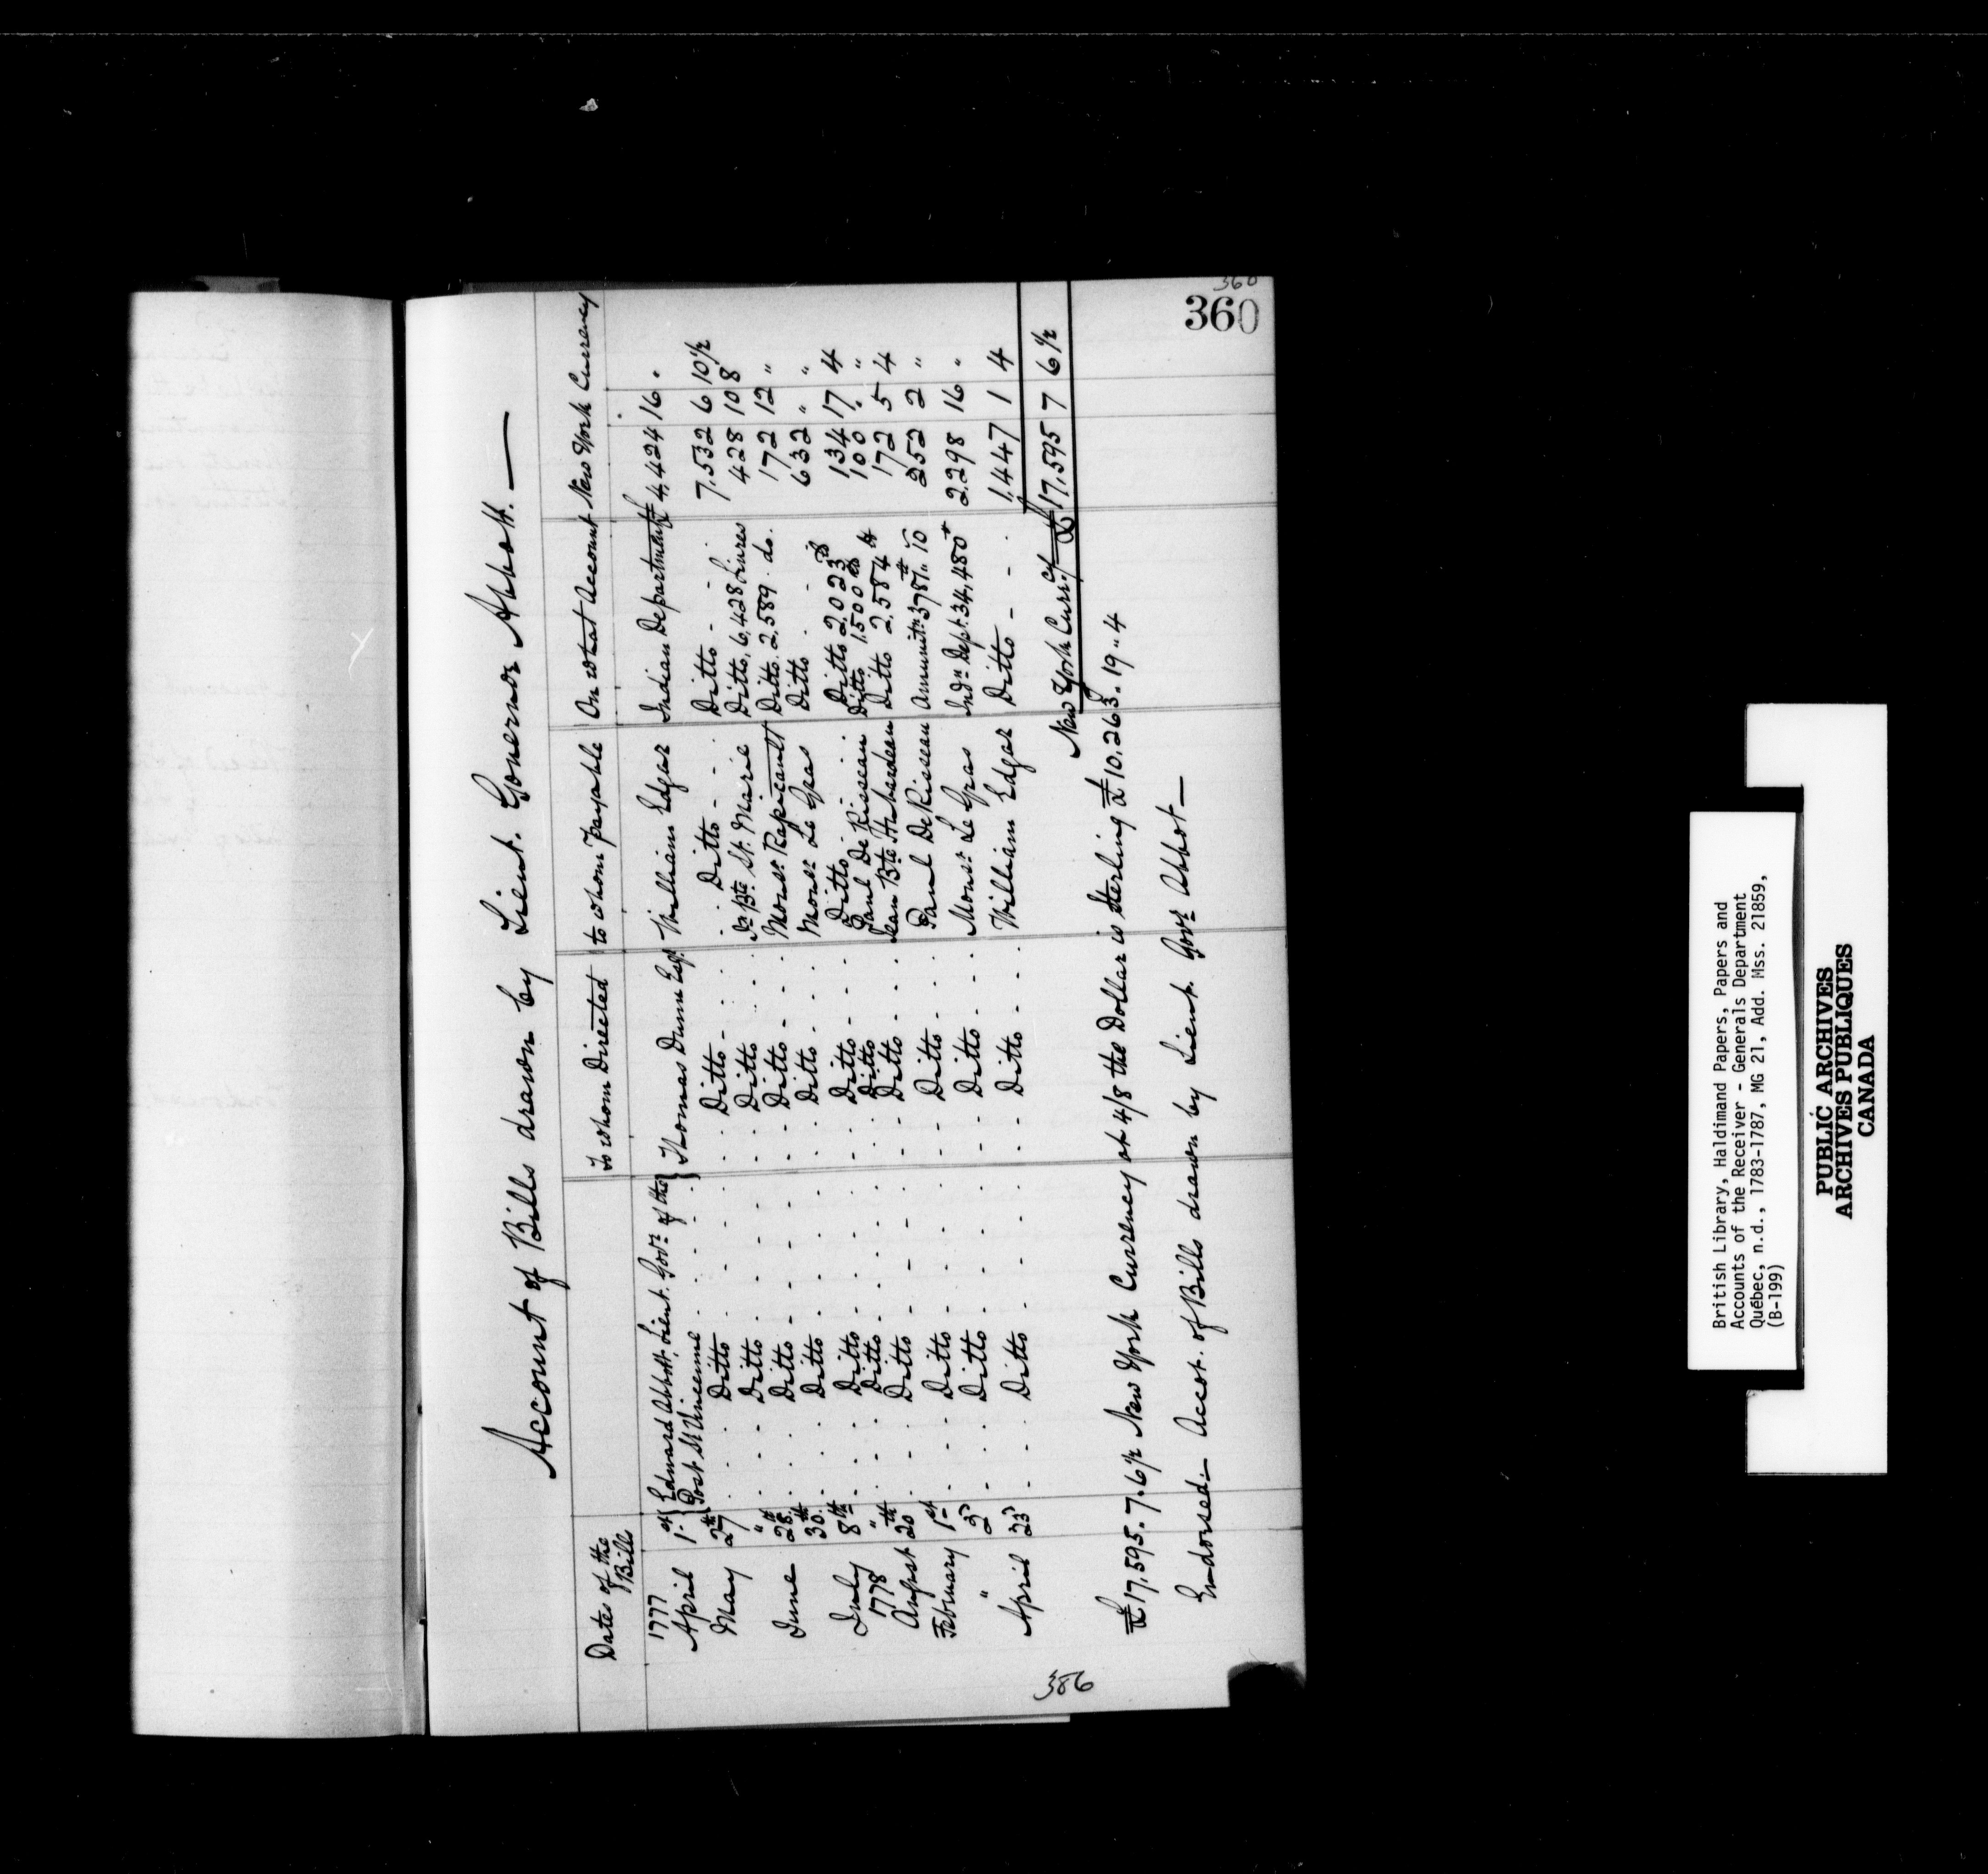 360
360
Account of Bills drawn by Lieut. Governor Abbott. —
Dates of the Bills | To whom Directed | to whom Payable | On what Account | New York Currency
1777
April 1st { Edward Abbott, Lieut. Govr. of the Post St Vincenne } Thomas Dunn Esqr. | William Edgar | Indian Department | £ 4,424 16 "
May 27th . . Ditto . . . . Ditto - . . | . Ditto - - . | Ditto - - . | 7,532 6 10 1/2
" . . Ditto . . . . Ditto . . . | Jn. Bte St. Marie | Ditto, 6,428 Livres | 428 10 8
June 28th . . Ditto - . . . Ditto - . . | Monsr. Rapicault | Ditto. 2,589 . do. | 172 12 "
30th . . Ditto . . . . Ditto . . . | Monsr. Le Gras | Ditto . . . | 632 " "
July 8th . . Ditto . . . . Ditto - . . | Ditto . . . | Ditto 2,023 | 134 17 4
" . . Ditto . . . . Ditto . . . | Paul De Risseau . | Ditto 1,500 | 100 . "
1778
August 20th . . Ditto - . . . Ditto - . . | Jean Bte | Ditto 2,584 | 172 5 4
February 1st . . Ditto - . . . Ditto - . . | Paul De Risseau | Ammunitn. 3781 " 10 | 252 2 "
" 2d . . Ditto . . . . Ditto - . . | Monsr. Le Gras | Indn. Dept. 34,480 | 2,298 16 "
April 23d . . Ditto . . . . Ditto - . . | William Edgar | Ditto - - . | 1,447 1 4
New York Currcy. £ 17,595 7 6 1/2
£17,595. 7. 6 1/2 New York Currency at 4/8 the Dollar is Sterling £10,263. 19 " 4
Endorsed. – Accot. of Bills drawn by Lieut. Govr. Abbot —
386
British Library, Haldimand Papers, Papers and
Accounts of the Receiver - Generals Department
Québec, n.d., 1783-1787, MG 21, Add. Mss. 21859,
(B-199)
PUBLIC ARCHIVES
ARCHIVES PUBLIQUES
CANADA